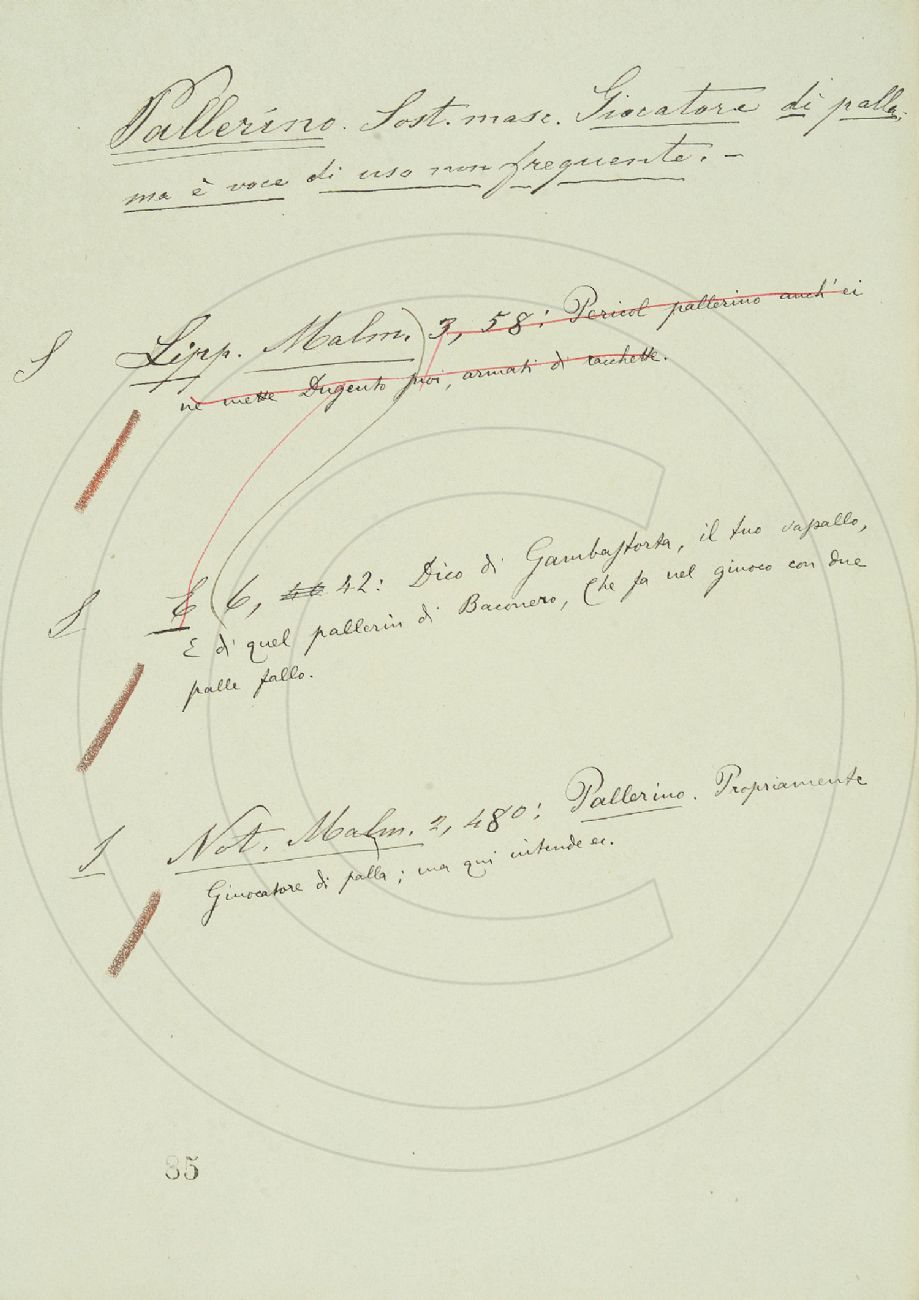 Pallerino. Sost. masc. Giocatore di palla;
ma è voce di uso non frequente. –
S Lipp. Malm. 3, 58: Pericol pallerino anch' ei
nè mette Dugento suoi, armati di racchette.
S E 6, 42: Dico di Gambastorta, il tuo vassallo,
E di quel pallerin di Baconero, Che fa nel giuoco con due
palle fallo.
S Not. Malm. 2, 480: Pallerino. Propriamente
Giuocatore di palla; ma qui intende ec.
35